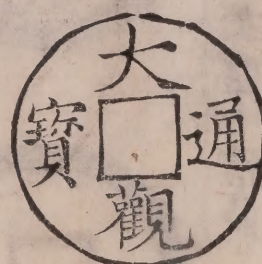 大觀通寶